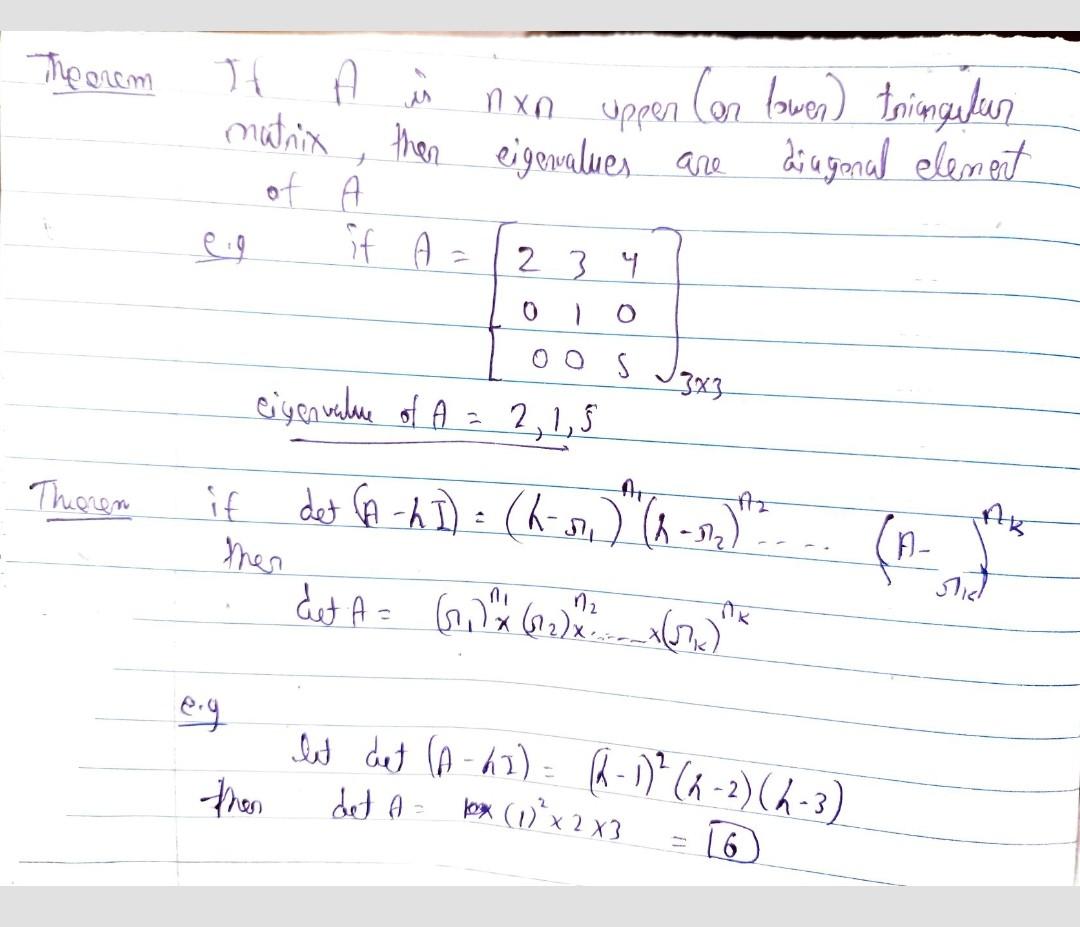 Theorem If A is nxn upper (or lower) triangular
matrix, then eigenvalues are diagonal element
of A
e.g if A = [2 3 4
0 1 0
0 0 5]3x3
eigenvalue of A = 2, 1, 5
Theorem if det (A - λI) = (λ - r₁)^n₁ (λ - r₂)^n₂ ..... (A - rₖ)^nₖ
then
det A = (r₁)^n₁ x (r₂)^n₂ x ...... x (rₖ)^nₖ
e.g
let det (A - λI) = (λ - 1)² (λ - 2) (λ - 3)
then det A = (1)² x 2 x 3 = 6